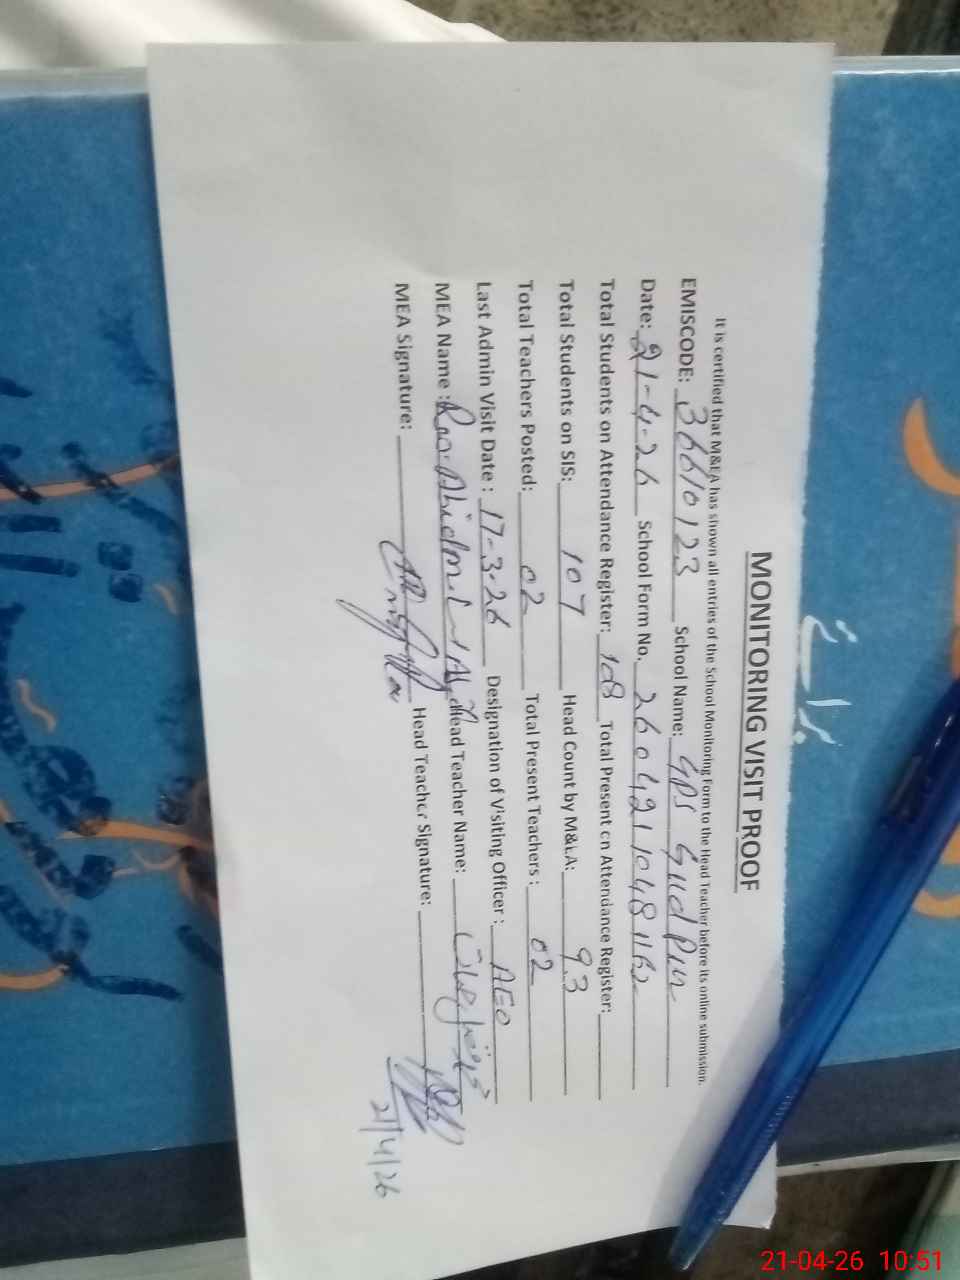 MONITORING VISIT PROOF
It is certified that M&EA has shown all entries of the School Monitoring Form to the Head Teacher before its online submission.
EMISCODE: 36610123 School Name: GPS
Date: 21-4-26 School Form No. 26042110481162
Total Students on Attendance Register: 108 Total Present on Attendance Register:
Total Students on SIS: 107 Head Count by M&EA: 93
Total Teachers Posted: 02 Total Present Teachers: 02
Last Admin Visit Date: 17-3-26 Designation of Visiting Officer: AEO
MEA Name: Rao Head Teacher Name:
MEA Signature: Head Teacher Signature:
21/4/26
21-04-26 10:51